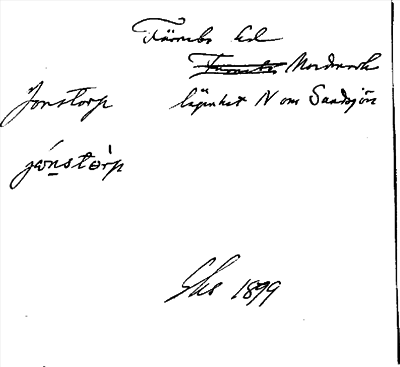 Färnebo hd
Nordmark
Jonstorp lägenhet N om Sandsjön
jωnstɵrp
Gks 1899